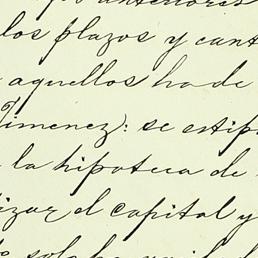 anteriores
los plazos y cant
aquellos ha de
Jimenez): se estip
la hipoteca de
izar el capital y